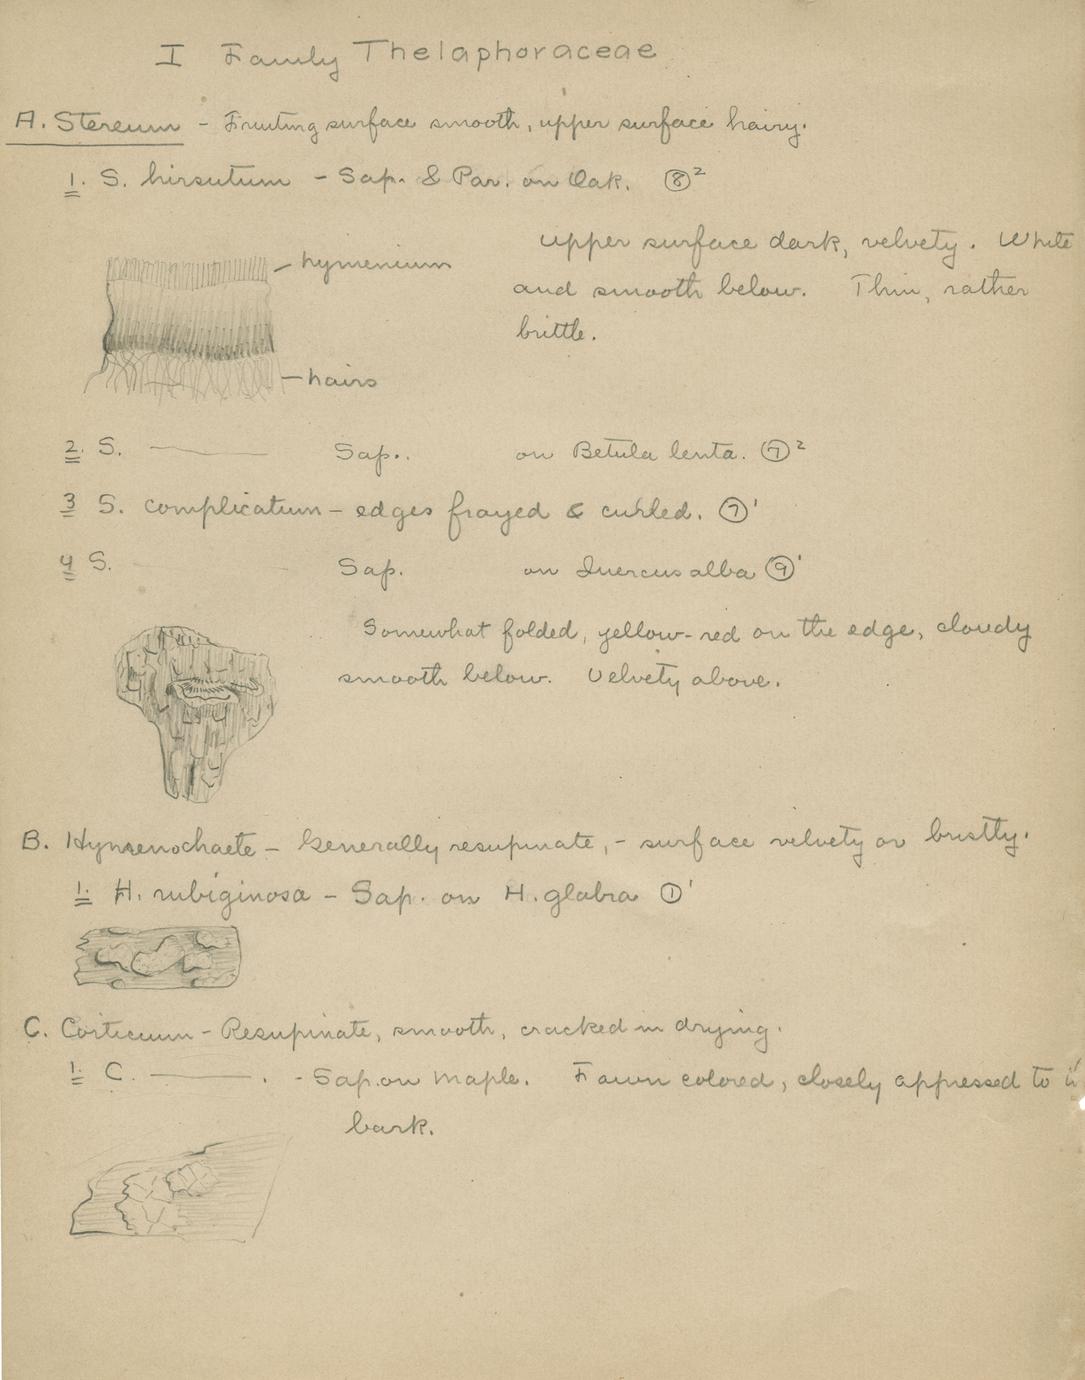 I Family Thelaphoraceae
A. Stereum - Fruiting surface smooth, upper surface hairy.
1. S. hirsutum - Sap. & Par. on Oak. ⑧²
upper surface dark, velvety. White
hymenium
and smooth below. Thin, rather
brittle.
hairs
2. S. ——— Sap.. on Betula lenta. ⑦²
3 S. complicatum - edges frayed & curled. ⑦'
4 S. Sap. on Quercus alba ⑨'
Somewhat folded, yellow-red on the edge, cloudy
smooth below. Velvety above.
B. Hymenochaete - Generally resupinate, - surface velvety or bristly.
1. H. rubiginosa - Sap. on H. glabra ①'
C. Corticium - Resupinate, smooth, cracked in drying.
1. C. ———. - Sap. on maple. Fawn colored, closely appressed to
bark.